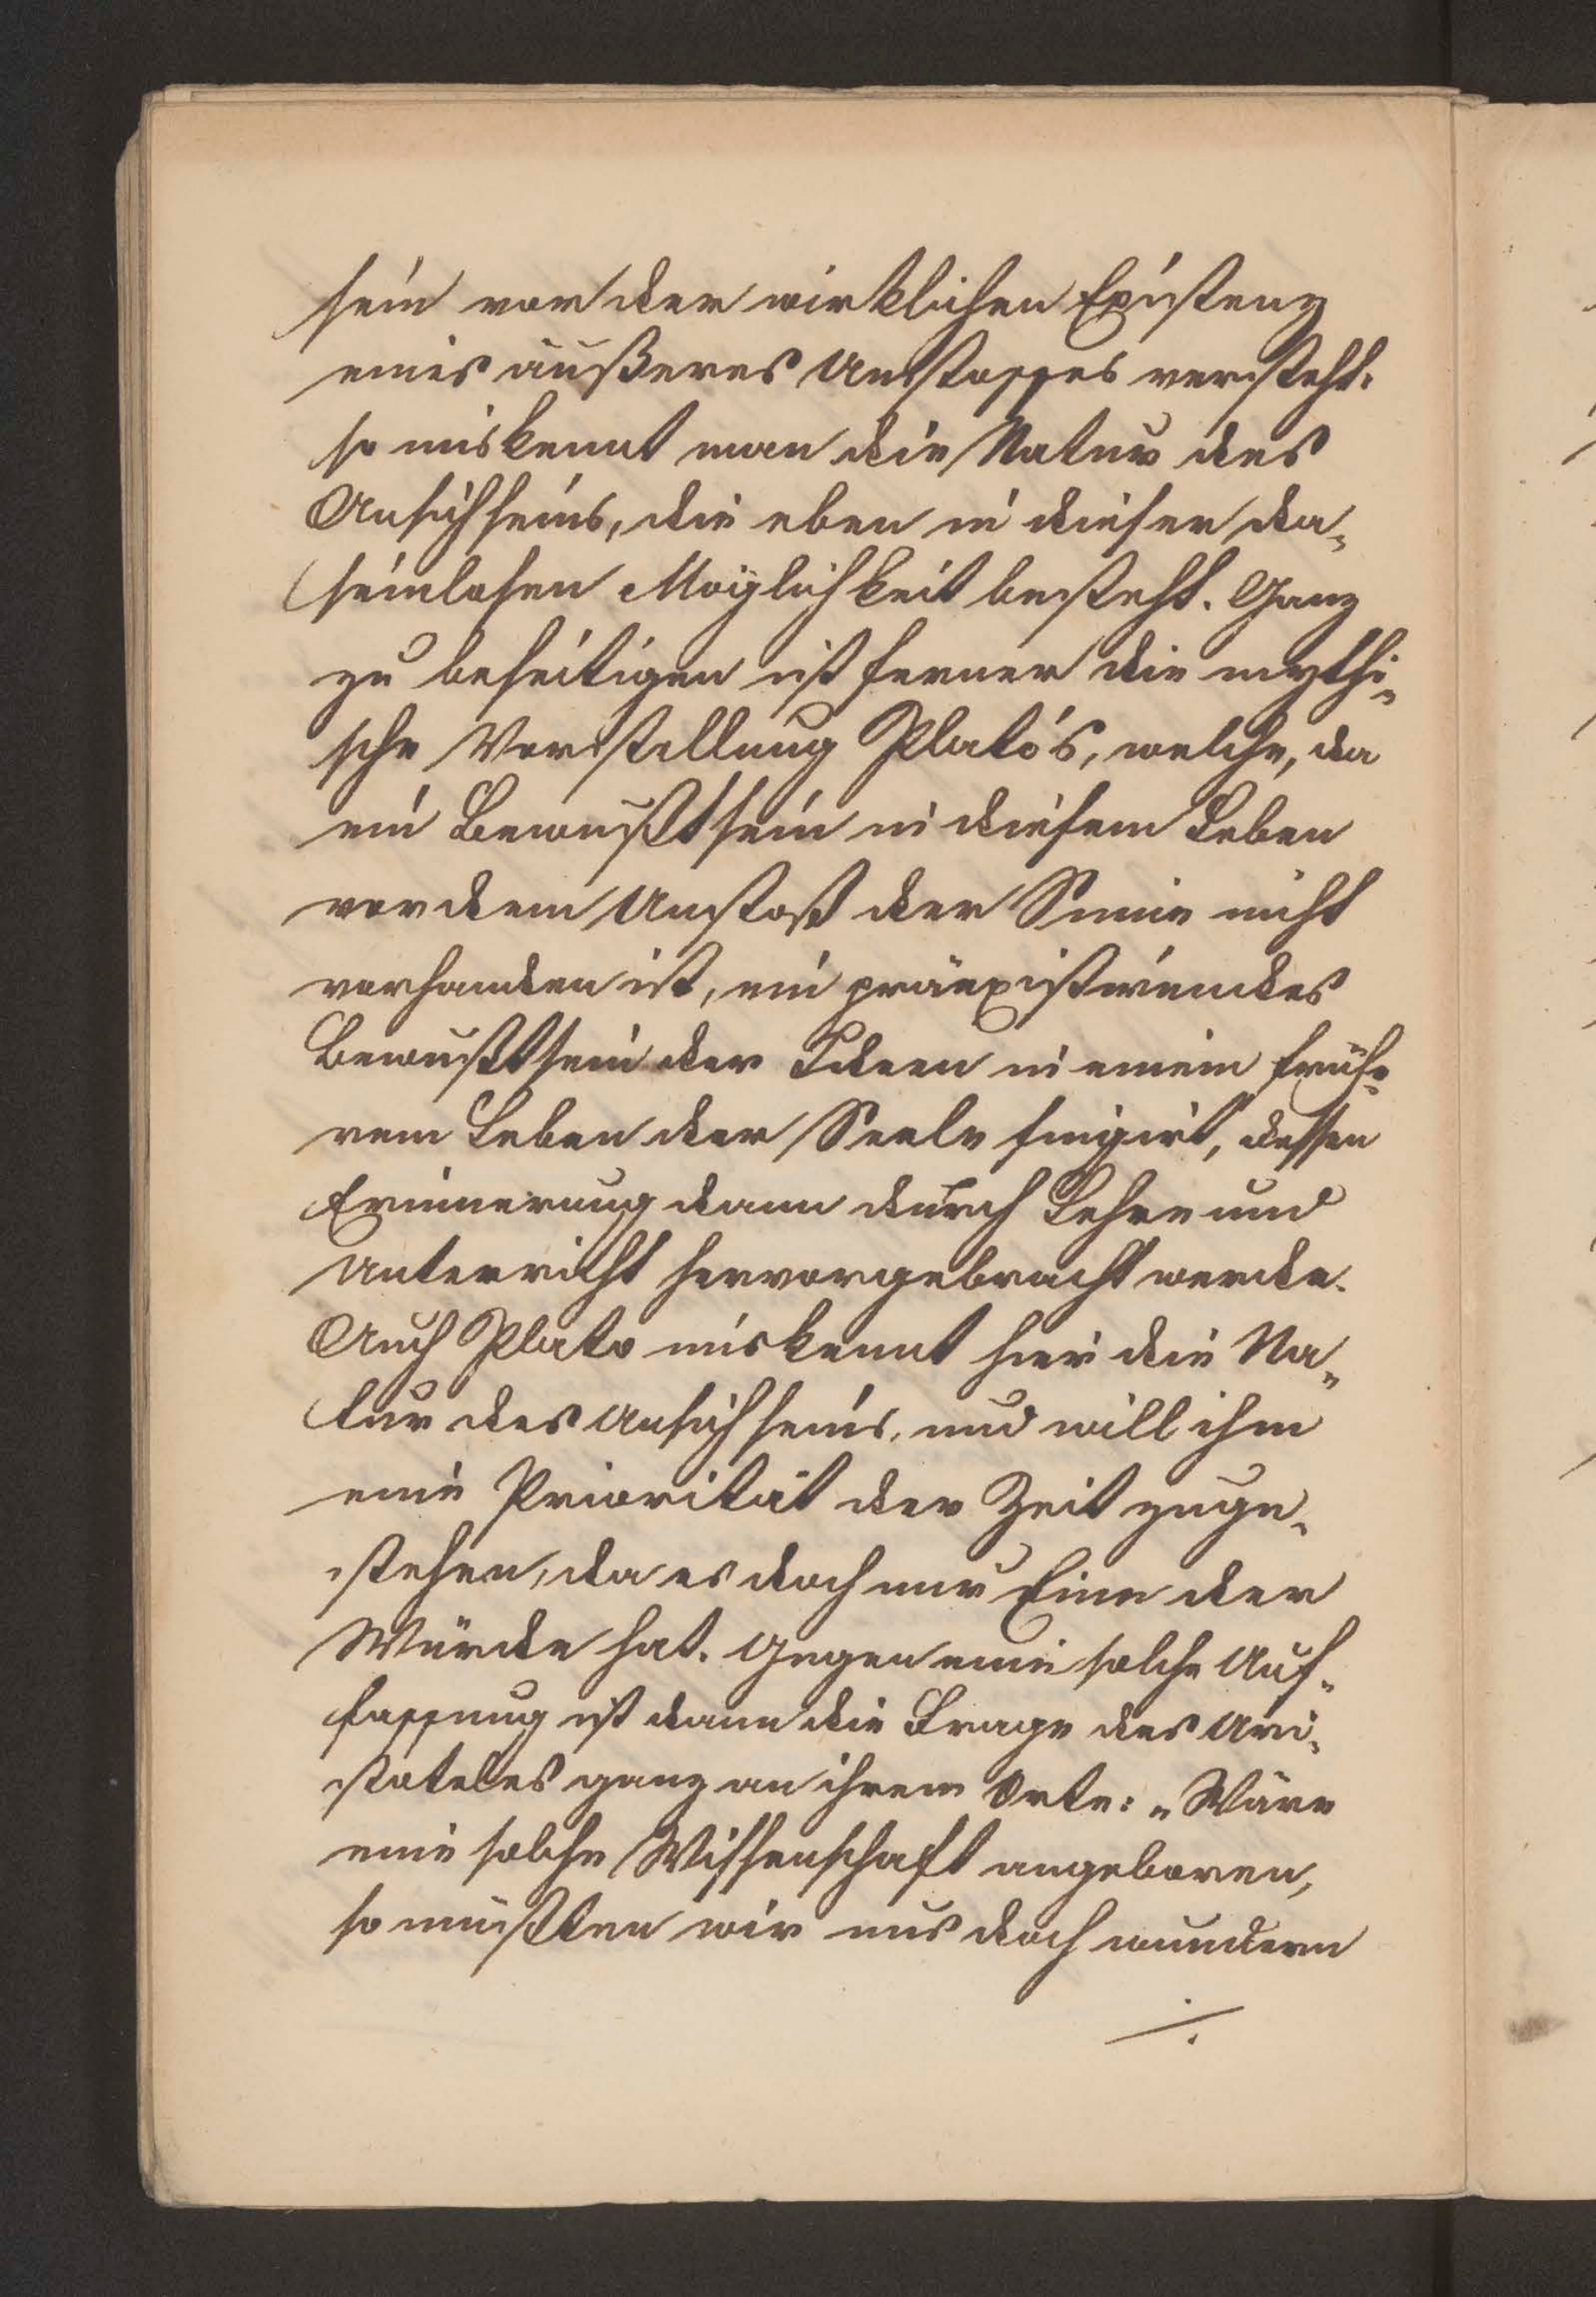 sein vor der wirklichen Existenz
eines äußeres Anstosses versteht.
so miskennt man die Natur des
Ansichseins, die eben in dieser da„
seinlosen Möglichkeit besteht. Ganz
zu beseitigen ist ferner die mythi„
sche Vorstellung Plato's, welche, da
ein Bewußtsein in diesem Leben
vor dem Anstoß der Sinne nicht
vorhanden ist, ein präexistirendes
Bewußtsein der Ideen in einem frühe„
rem Leben der Seele fingirt, dessen
Erinnerung dann durch Lehre und
Unterricht hervorgebracht werde.
Auch Plato miskennt hier die Na„
tur des Ansichseins, und will ihm
eine Priorität der Zeit zuge„
stehen, da es doch nur Eine der
Würde hat. Gegen eine solche Auf„
fassung ist dann die Frage des Ari„
stoteles ganz an ihrem Orte: „Wäre
eine solche Wissenschaft angeboren,
so müßten wir uns doch wundern
./.